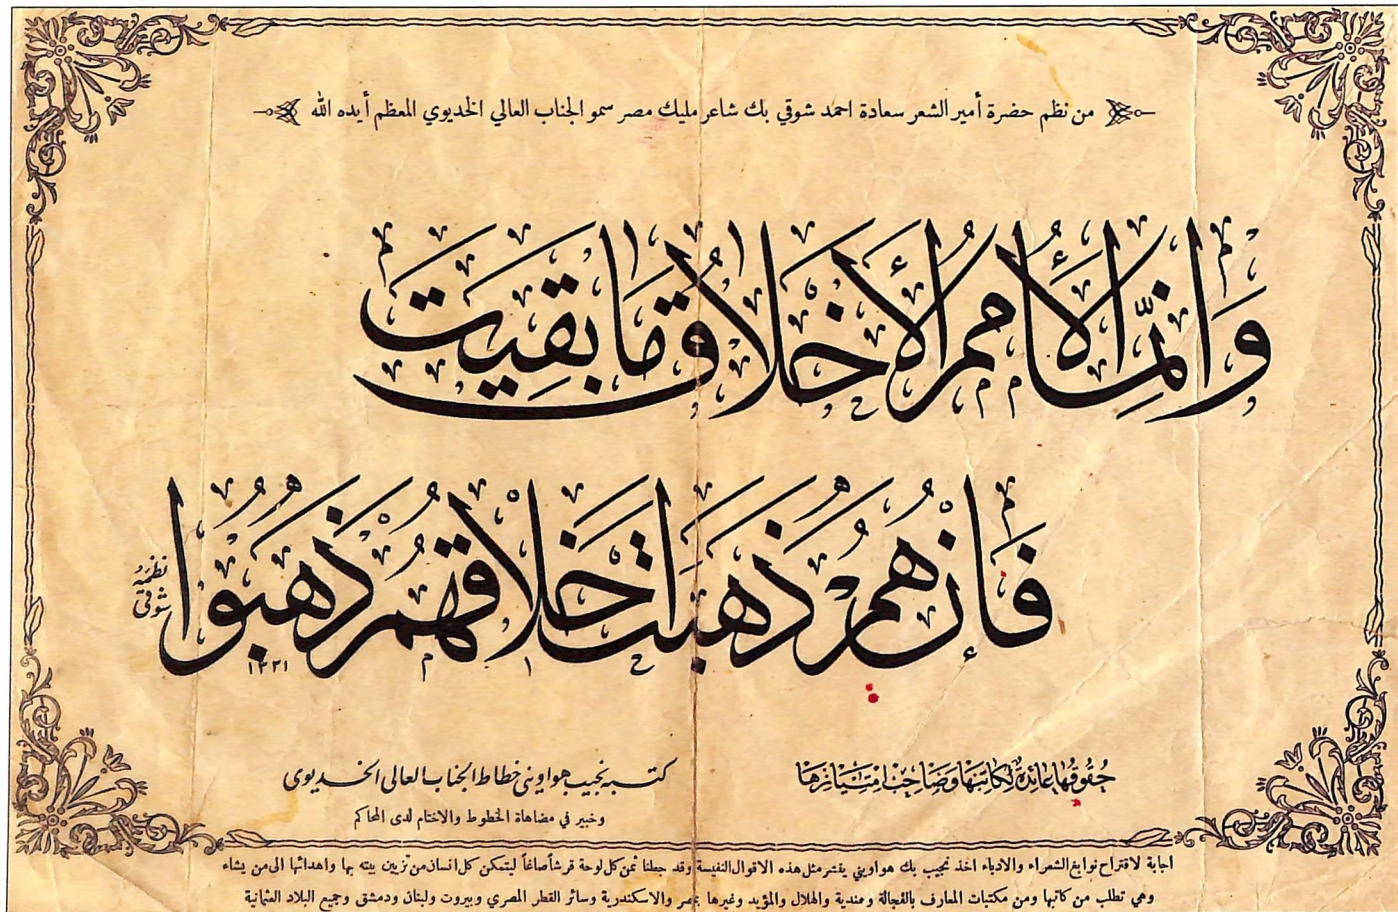 من نظم حضرة أمير الشعر سعادة احمد شوقي بك شاعر مليك مصر سمو الجناب العالي الخديوي المعظم أيده الله
وَانَّمَا الْأُمَمُ الْأَخْلَاقُ مَا بَقِيَتْ
فَإِنْ هُمُ ذَهَبَتْ اخْلَاقُهُمْ ذَهَبُوا
نظمه شوقي
١٣٢١
حقوقها عائدة لكاتبها وصاحب امتيازها
كتبه نجيب هواويني خطاط الجناب العالي الخديوي
وخبير في مضاهاة الخطوط والاختام لدى المحاكم
اجابة لاقتراح نوابغ الشعراء والادباء اخذ نجيب بك هواويني ينشر مثل هذه الاقوال النفيسة وقد جعلنا ثمن كل لوحة قرشاً صاغاً ليتمكن كل انسان من تزيين بيته بها واهدائها الى من يشاء
وهي تطلب من كاتبها ومن مكتبات المعارف بالفجالة وهندية والهلال والمؤيد وغيرها بمصر والاسكندرية وسائر القطر المصري وبيروت ولبنان ودمشق وجميع البلاد العثمانية